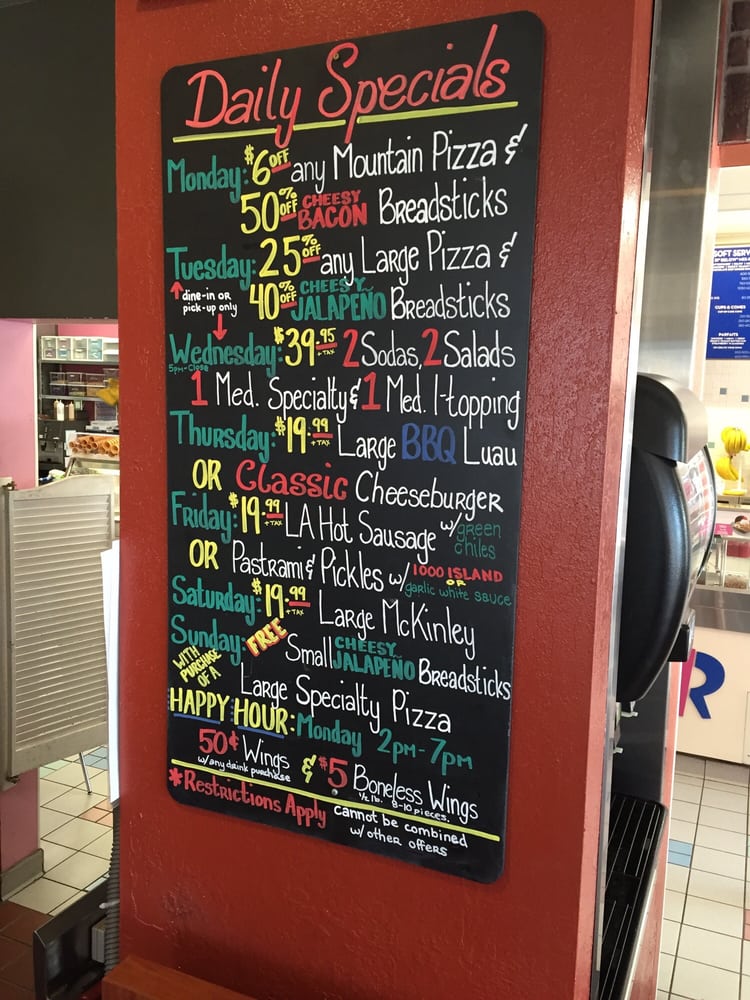 Daily Specials
Monday: $6 OFF any Mountain Pizza &
50% OFF CHEESY BACON Breadsticks
Tuesday: 25% OFF any Large Pizza &
dine-in or pick-up only
40% OFF CHEESY JALAPEÑO Breadsticks
Wednesday: $39.95 +TAX 2 Sodas, 2 Salads
5pm-Close
1 Med. Specialty & 1 Med. 1-topping
Thursday: $19.99 +TAX Large BBQ Luau
OR Classic Cheeseburger
Friday: $19.99 +TAX LA Hot Sausage w/ green chiles
OR Pastrami & Pickles w/ 1000 ISLAND OR garlic white sauce
Saturday: $19.99 +TAX Large McKinley
Sunday: FREE Small CHEESY JALAPEÑO Breadsticks
WITH PURCHASE OF A Large Specialty Pizza
HAPPY HOUR: Monday 2pm-7pm
50¢ Wings & $5 Boneless Wings
w/any drink purchase
1/2 lb. 8-10 pieces.
*Restrictions Apply cannot be combined w/ other offers
SOFT SERV
CUPS & CONES
PARFAITS
R